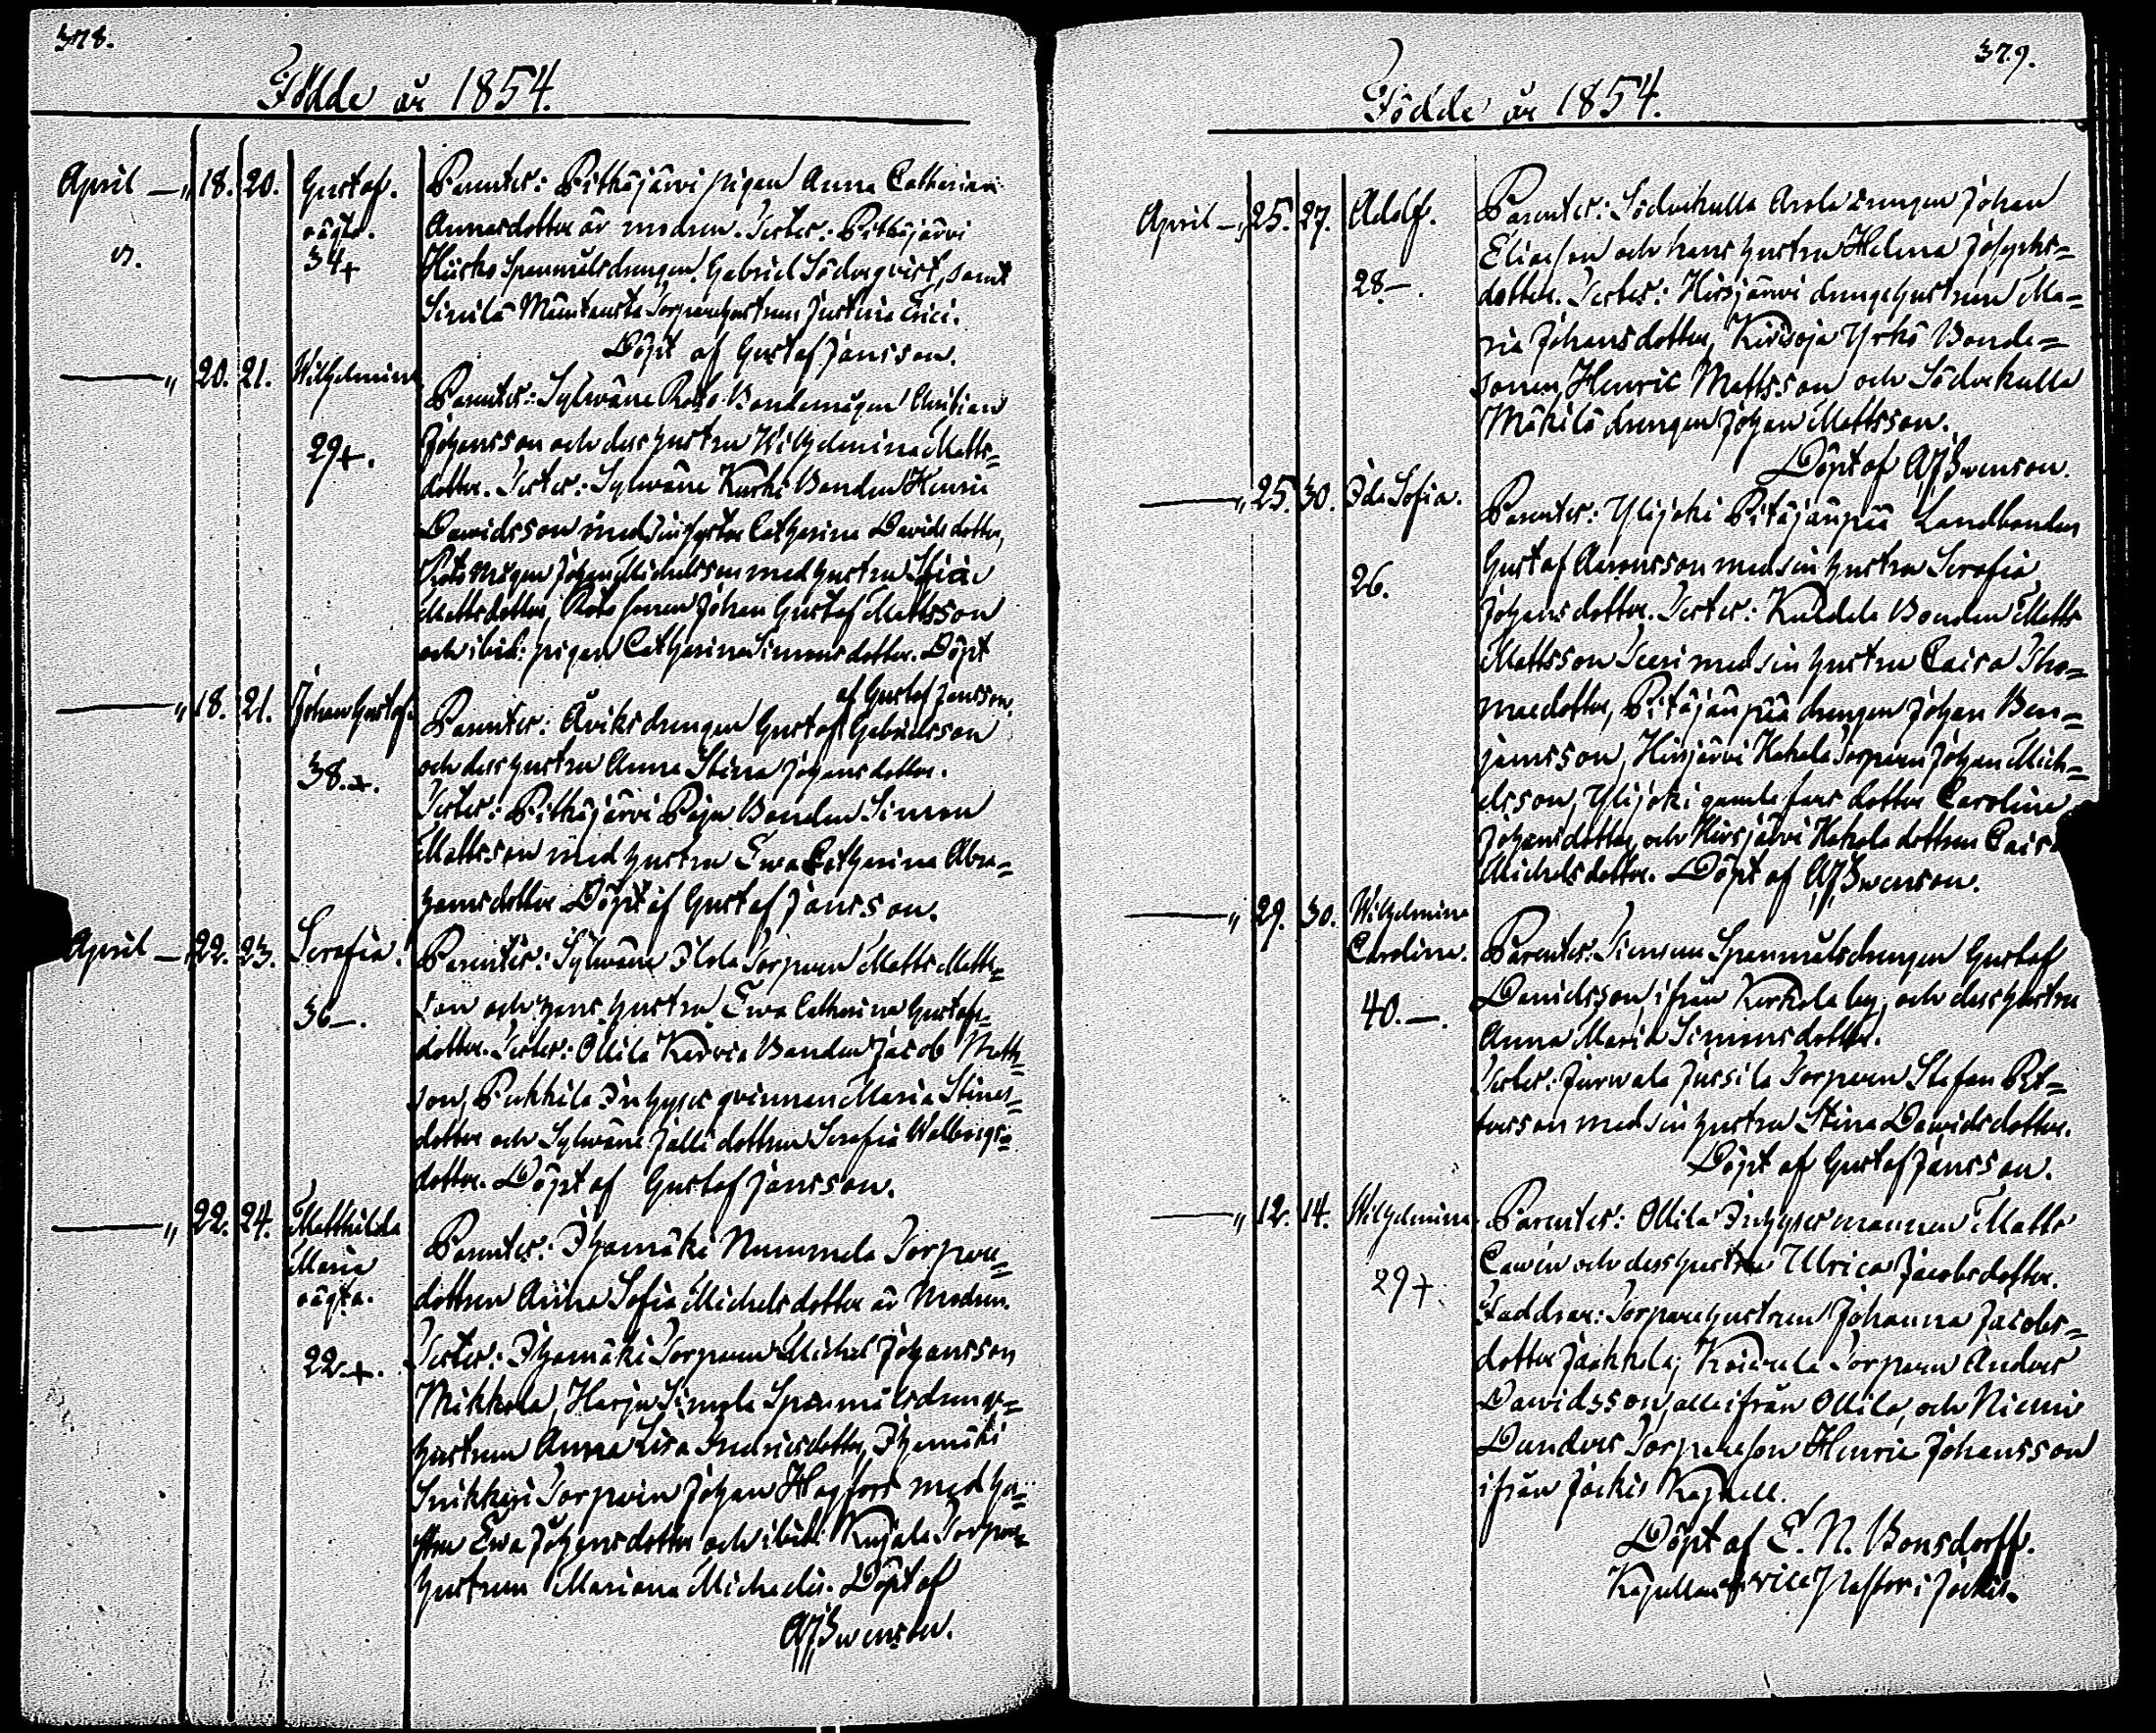 378.
Födde år 1854.
April — „ 18. 20. Gustaf. oägta. 34+
Parenter: Pitkäjärvi pigan Anna Catharina
Annasdotter är modren. Tester: Pitkäjärvi
Hiisko Spanmålsdrengen Gabriel Söderqvist, samt
Simila Mäentausta Torparehustrun Justina Erici.
Döpt af Gustaf Jansson.
— „ 20. 21. Wilhelmina 29+.
Parenter: Sylwäne Roto Bondemågen Christian
Johansson och dess hustru Wilhelmina Matts-
dotter. Tester: Sylwäne Kurki Bonden Henric
Davidsson med sin hustru Catharina Davidsdotter,
Roto mågen Johan Michelsson med hustru
Mattsdotter, Roto sonen Johan Gustaf Mattsson
och ibid: pigan Catharina Simonsdotter. Döpt
af Gustaf Jansson.
— „ 18. 21. Johan Gustaf. 38.+.
Parenter: Åviks drengen Gustaf Gabrielsson
och dess hustru Anna Stina Johansdotter.
Tester: Pitkäjärvi Paju Bonden Simon
Mattsson med hustru Ewa Catharina Abra-
hamsdotter Döpt af Gustaf Jansson.
April — „ 22. 23. Serafia. 36—.
Parenter: Sylwäne Ilola Torparen Matts Matts-
son och hans hustru Ewa Catharina Gustafs-
dotter. Tester: Ollila Bonden Jacob Matts-
son, Pukkila Inhyses qvinnan Maria Stinas-
dotter och Sylwäne Jalli dottren Serafia Walborgs-
dotter. Döpt af Gustaf Jansson.
— „ 22. 24. Matthilda Maria oägta. 22.+.
Parenter: Ihamäki Nummela Torpare-
dottren Anna Sofia Michelsdotter är Modren.
Tester: Ihamäki Torparen Michel Johansson
Mikkola, Harju Simola Spanmålsdrengs-
hustrun Anna Lisa Indricsdotter, Ihamäki
Snikkari Torparen Johan Hagfors med hu-
stru Ewa Johansdotter och ibid: Kujala Torpare-
hustrun Mariana Michaelis. Döpt af
AJSwenson.
379.
Födde år 1854.
April — „ 25. 27. Adolf. 28.—.
Parenter: Söderkulla Arola drengen Johan
Eliasson och hans hustru Helena Josephs-
dotter. Tester: Hirsjärvi drengehustrun Ma-
ria Johansdotter, Kirisoja Yrkö Bonde-
sonen Henric Mattsson och Söderkulla
Mäkilä drengen Johan Mattsson.
Döpt af AJSwenson.
— „ 25. 30. Ida Sofia. 26.
Parenter: Ylijoki Pitäjänpää Landbonden
Gustaf Aaronsson med sin hustru Serafia
Johansdotter. Tester: Bonden Matts
Mattsson med sin hustru Caisa Tho-
maedotter, Pitäjänpää drengen Johan Ben-
jamsson, Hirsjärvi Hakala Torparen Johan Mich-
elsson, Ylijoki gamle fars dotter Carolina
Johansdotter, och Hirsjärvi Hakala dottren Caisa
Michelsdotter. Döpt af AJSwenson.
— „ 29. 30. Wilhelmina Carolina. 40.—.
Parenter: Spanmålsdrengen Gustaf
Davidsson, ifrån Kerkola by, och dess hustru
Anna Maria Simonsdotter.
Tester: Jurwala Jussila Torparen Stefan Pet-
tersson med sin hustru Stina Davidsdotter.
Döpt af Gustaf Jansson.
— „ 12. 14. Wilhelmina. 29+.
Parenter: Ollila Inhyses mannen Matts
och dess hustru Ulrica Jacobsdotter.
Faddrar: Torparehustrun Johanna Jacobs-
dotter Jaakkola, Torparen Anders
Davidsson, alla ifrån Ollila, och Niemi
Torparesson Henric Johansson
ifrån Jockis Kapell.
Döpt af E. N. Bonsdorff.
Kapellan o. vice Pastor i Jockis.